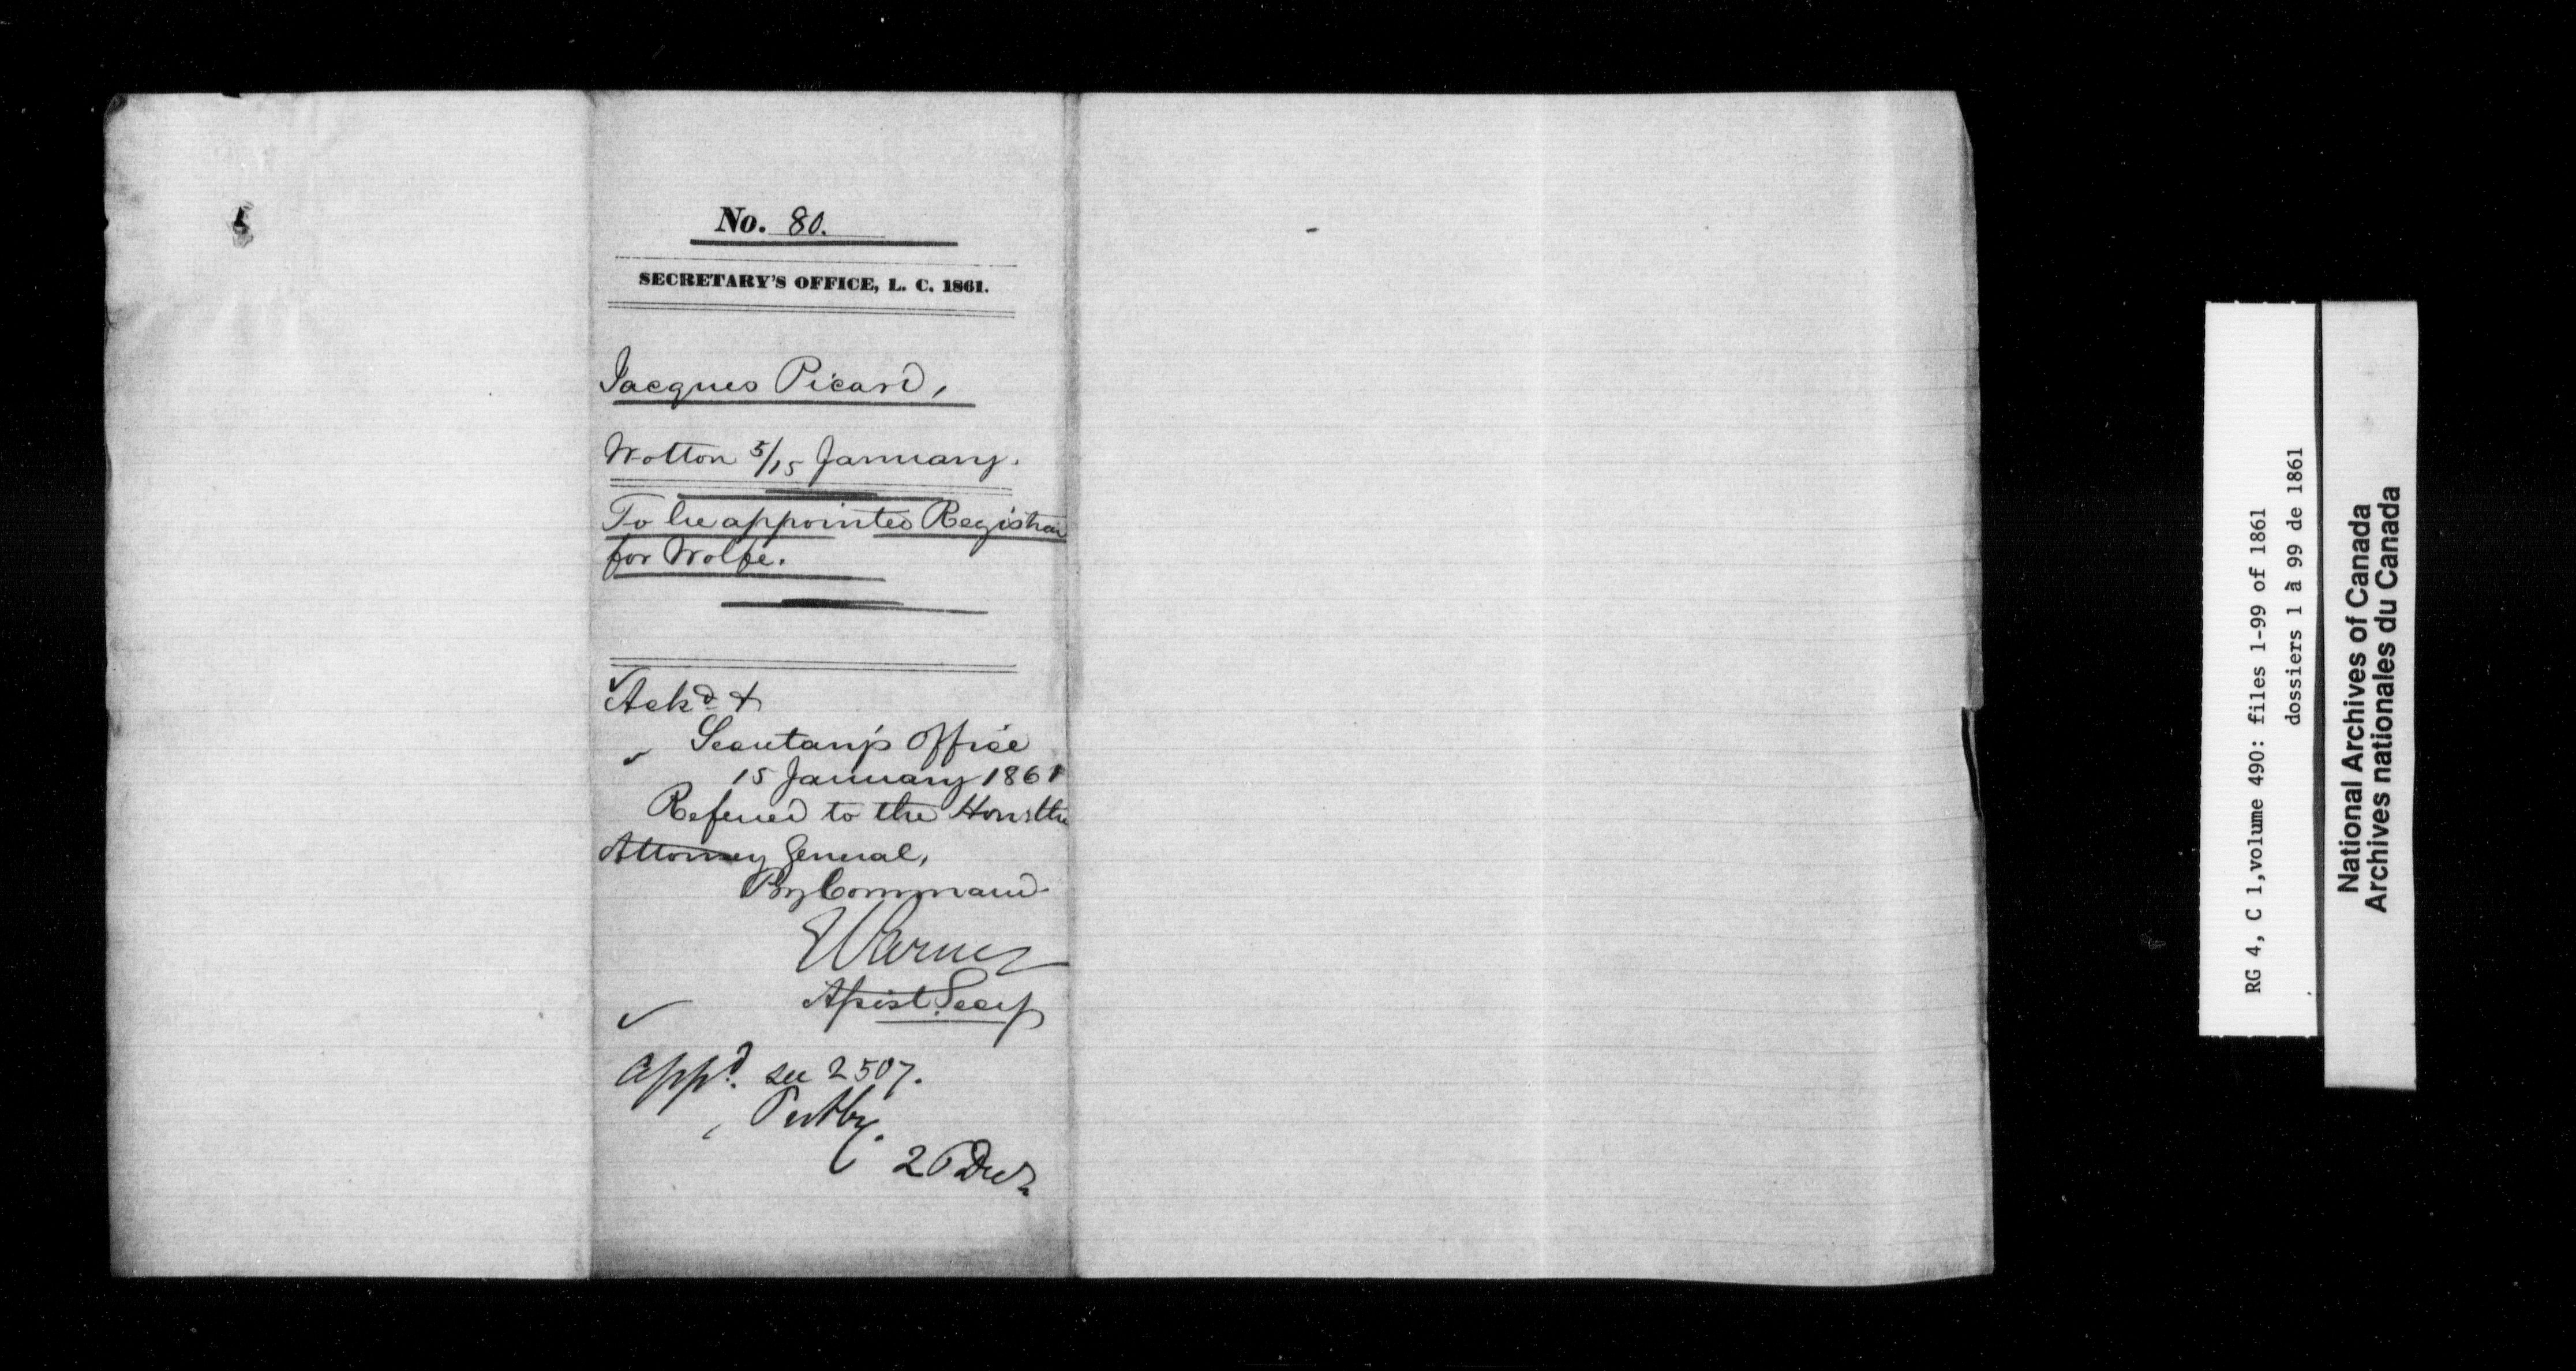 No. 80.
SECRETARY'S OFFICE, L. C. 1861.
Jacques Picard,
Wotton 5/15 January.
To be appointed Registrar
for Wolfe.
Ackd &
Secretary's Office
15 January 1861
Referred to the Hon: the
Attorney General,
By Command
E Parent
Assist. Secy
appd. see 2507.
Put by.
RG 4, C 1,volume 490: files 1-99 of 1861
dossiers 1 à 99 de 1861
National Archives of Canada
Archives nationales du Canada